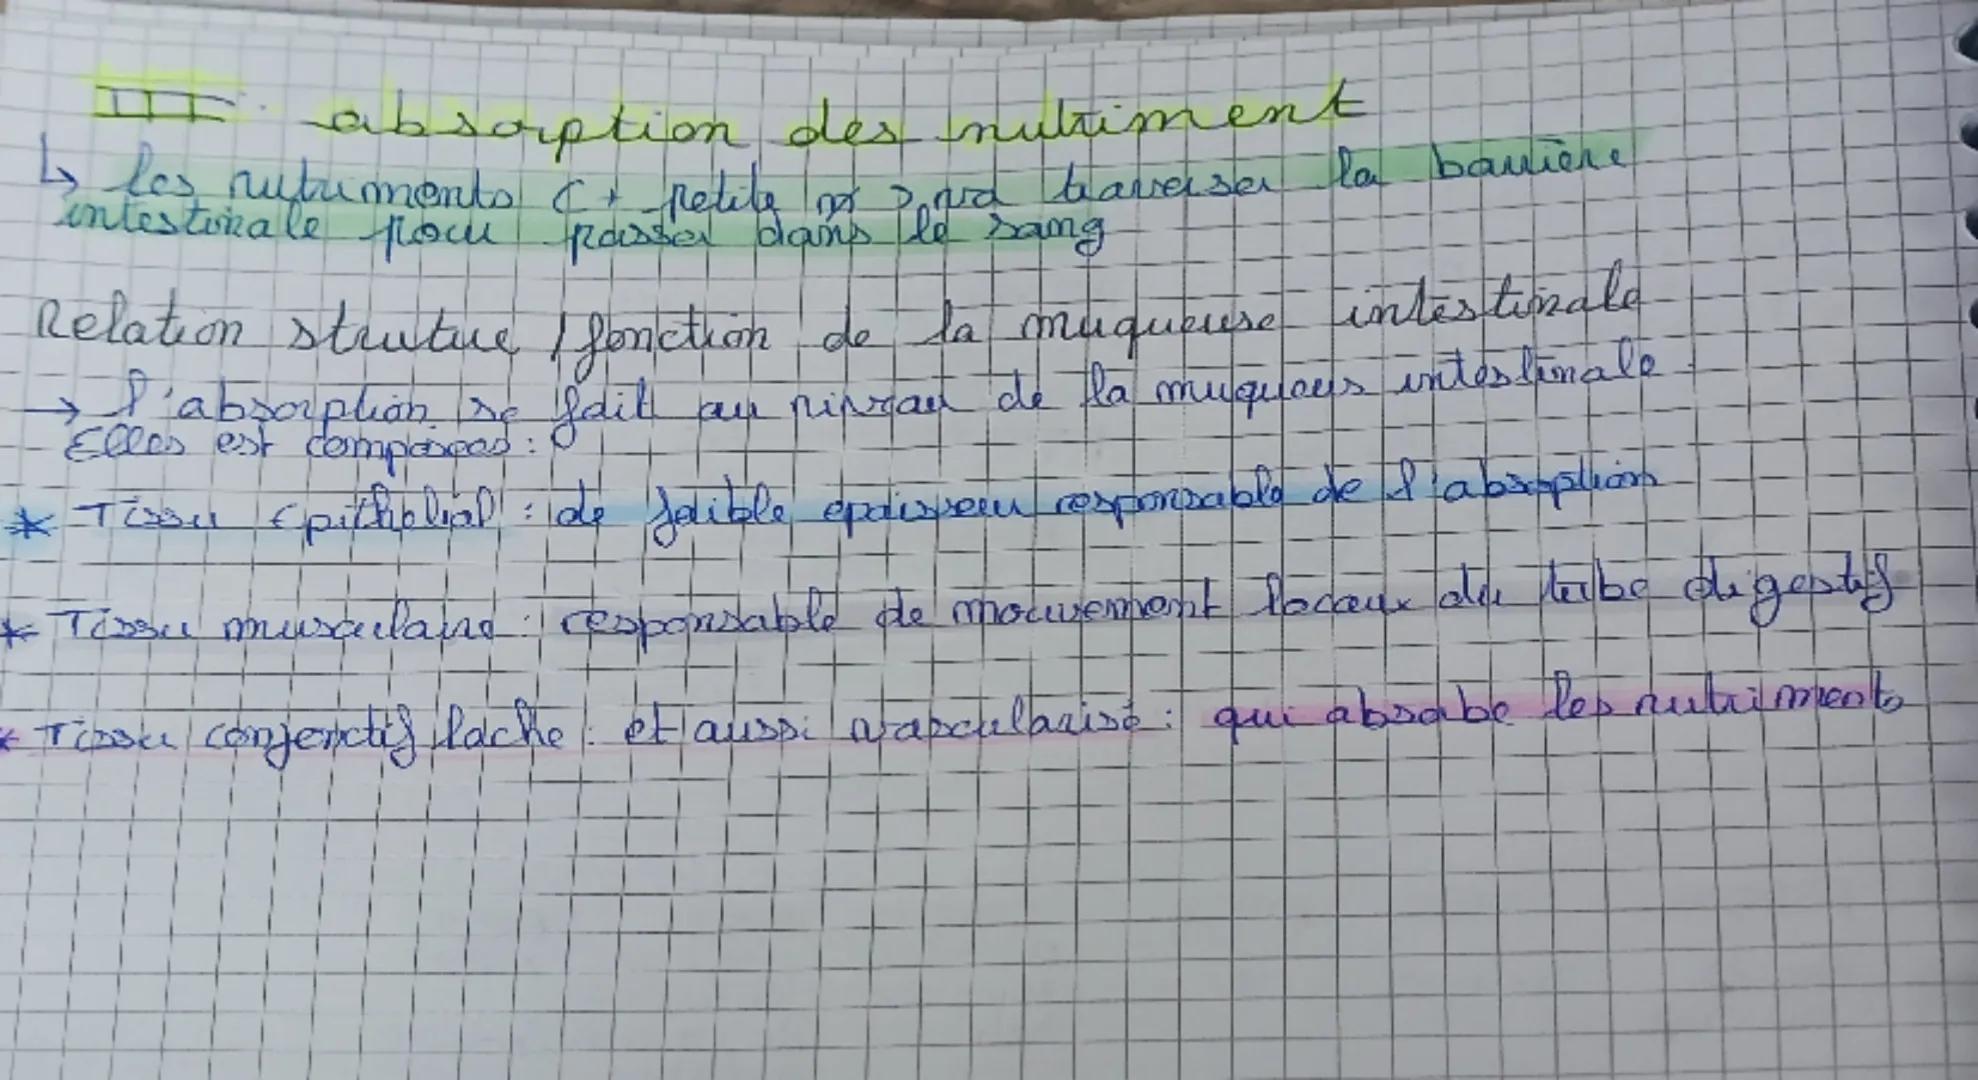 III. absorption des nutriment
↳ les nutriments (+ petite vont traverser la barrière
intestinale pour passer dans le sang
Relation struture / fonction de la muqueuse intestinale
→ l'absorption se fait au niveau de la muqueus intestinale
Elles est composées :
* Tissu épithélial : de faible epaisseur responsable de l'absorption
* Tissu musculaire : responsable de mouvement locaux du tube digestif
* Tissu conjenctif lache : et aussi vascularisé : qui absorbe les nutriments